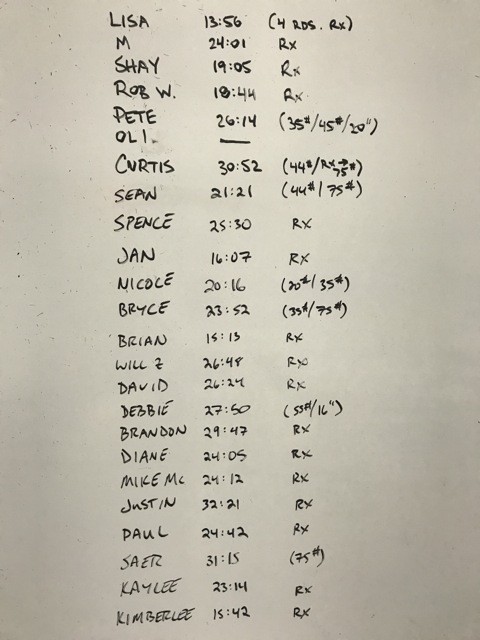 LISA 13:56 (4 RDS. RX)
M 24:01 RX
SHAY 19:05 RX
ROB W. 18:44 RX
PETE 26:14 (35#/45#/20")
OLI. —
CURTIS 30:52 (44#/RX→75#)
SEAN 21:21 (44#/75#)
SPENCE 25:30 RX
JAN 16:07 RX
NICOLE 20:16 (20#/35#)
BRYCE 23:52 (35#/75#)
BRIAN 15:15 RX
WILL Z 26:48 RX
DAVID 26:24 RX
DEBBIE 27:50 (55#/16")
BRANDON 29:47 RX
DIANE 24:05 RX
MIKE MC 24:12 RX
JUSTIN 32:21 RX
PAUL 24:42 RX
SAER 31:15 (75#)
KAYLEE 23:14 RX
KIMBERLEE 15:42 RX